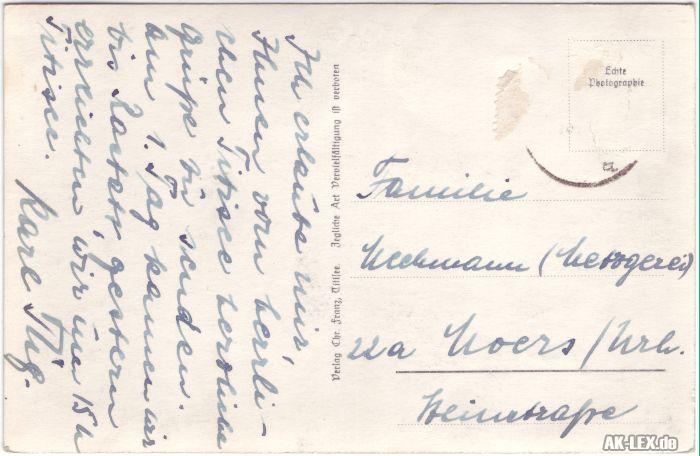 Ich erlaube mir,
Ihnen vom herrli-
chen Titisee herzliche
Grüße zu senden.
am 1. Tag kamen wir
bis Rastatt, gestern
erreichten wir um 15 h
Titisee.
Karl
Verlag Chr. Franz, Titisee. Jegliche Art Vervielfältigung ist verboten
Echte
Photographie
Familie
(Metzgerei)
22a Moers/Nrh.
Steinstraße
AK-LEX.de